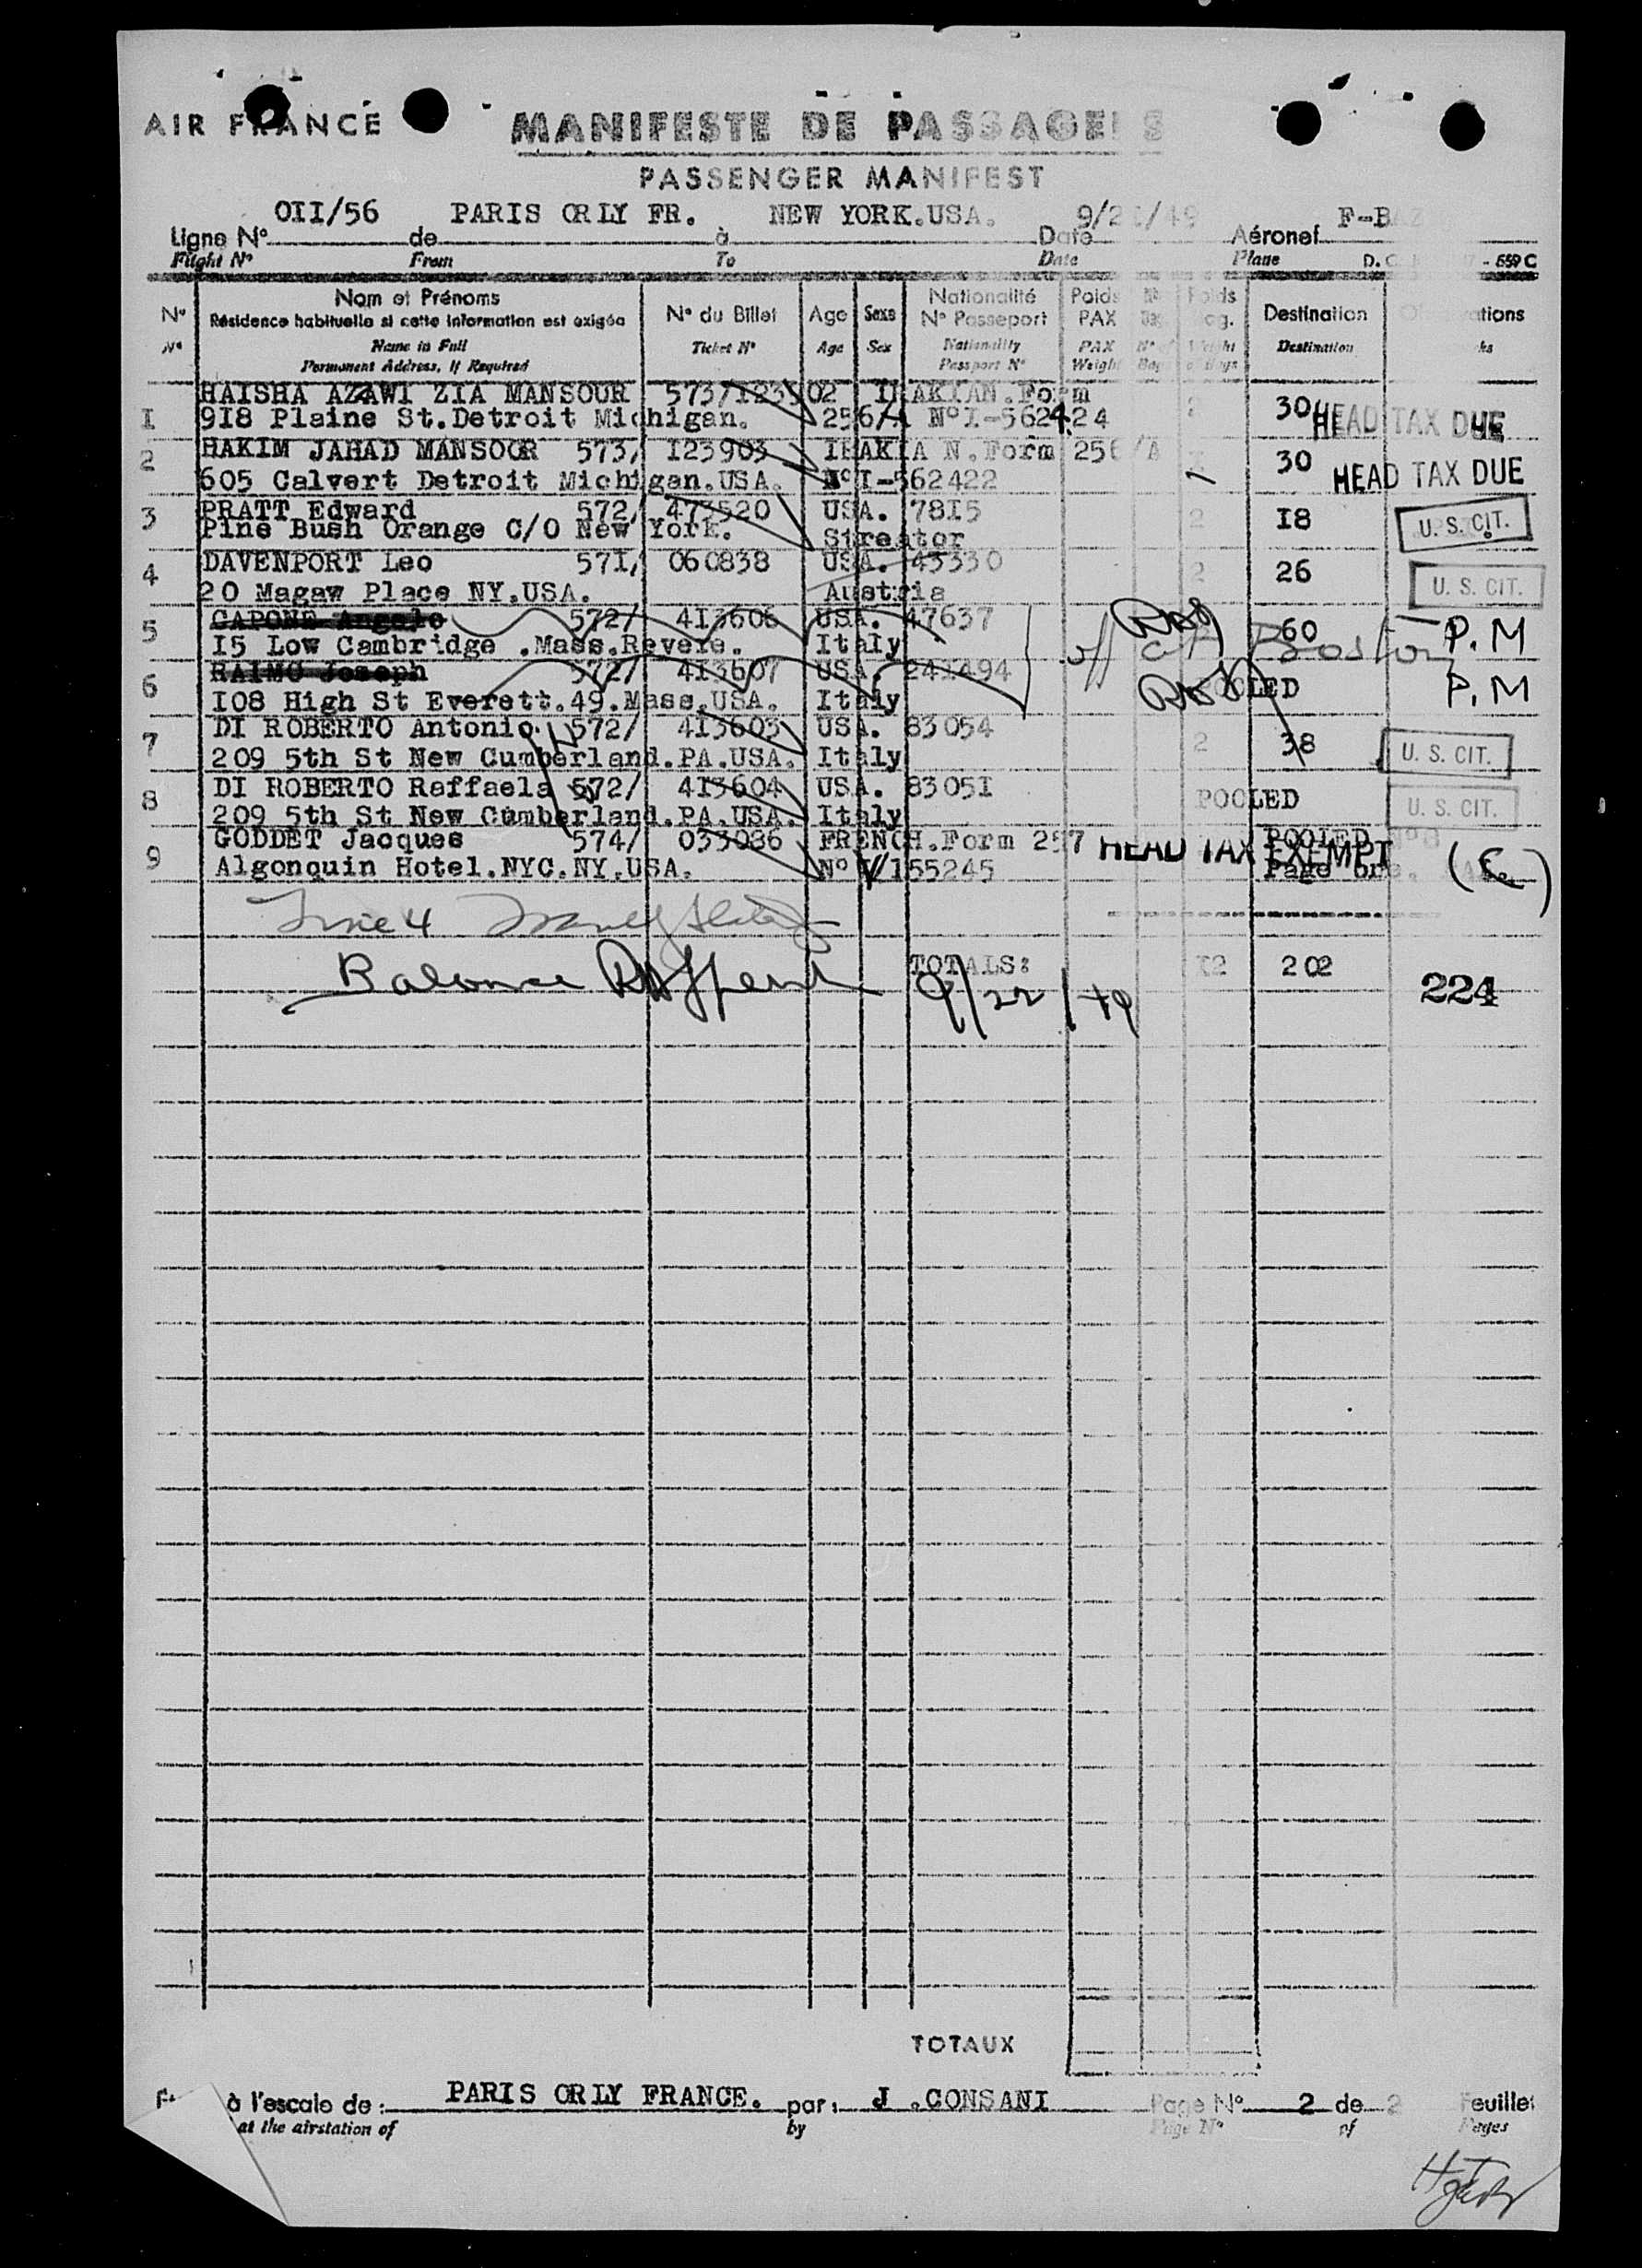 AIR FRANCE
MANIFESTE DE PASSAGERS
PASSENGER MANIFEST
OII/56 PARIS ORLY FR. NEW YORK.USA. 9/2I/49 F-BAZ
Ligne N° de à Date Aéronef
Flight N° From To Date Plane - 559 C
N° Nom et Prénoms N° du Billet Age Sexe Nationalité Poids Poids Destination
Résidence habituelle si cette information est exigée N° Passeport PAX
N° Name in Full Ticket N° Age Sex Nationality PAX Destination
Permanent Address, If Required Passport N° Weight
HAISHA AZAWI ZIA MANSOUR 573/I23902 IRAKIAN.Form
I 9I8 Plaine St.Detroit Michigan. 256/A N°I-562424 2 30 HEAD TAX DUE
HAKIM JAHAD MANSOOR 573/ I23903 IRAKIA N.Form 256/A
2 605 Calvert Detroit Michigan.USA. N°I-562422 30 HEAD TAX DUE
PRATT Edward 572/ 473520 USA. 78I5
3 Pine Bush Orange C/O New York. Streator 2 I8 U. S. CIT.
DAVENPORT Leo 57I/ 060838 USA. 43330
4 20 Magaw Place NY.USA. Austria 2 26 U. S. CIT.
CAPONE Angelo 572/ 4I3606 USA. 47637
5 I5 Low Cambridge .Mass.Revere. Italy off at Boston 60 P.M
RAIMO Joseph 572/ 4I3607 USA. 24I494
6 I08 High St Everett.49.Mass.USA. Italy POOLED P.M
DI ROBERTO Antonio. 572/ 4I3603 USA. 83054
7 209 5th St New Cumberland.PA.USA. Italy 2 38 U. S. CIT.
DI ROBERTO Raffaela 572/ 4I3604 USA. 8305I
8 209 5th St New Cumberland.PA.USA. Italy POOLED U. S. CIT.
GODDET Jacques 574/ 033086 FRENCH.Form 257 HEAD TAX EXEMPT POOLED N°8
9 Algonquin Hotel.NYC.NY.USA. N° V/I55245 Page
Line 4
Balance 9/22/49
TOTALS: I2 202
224
TOTAUX
à l'escale de : PARIS ORLY FRANCE. par : J .CONSANI Page N° 2 de 2 Feuilles
at the airstation of by Page N° of Pages